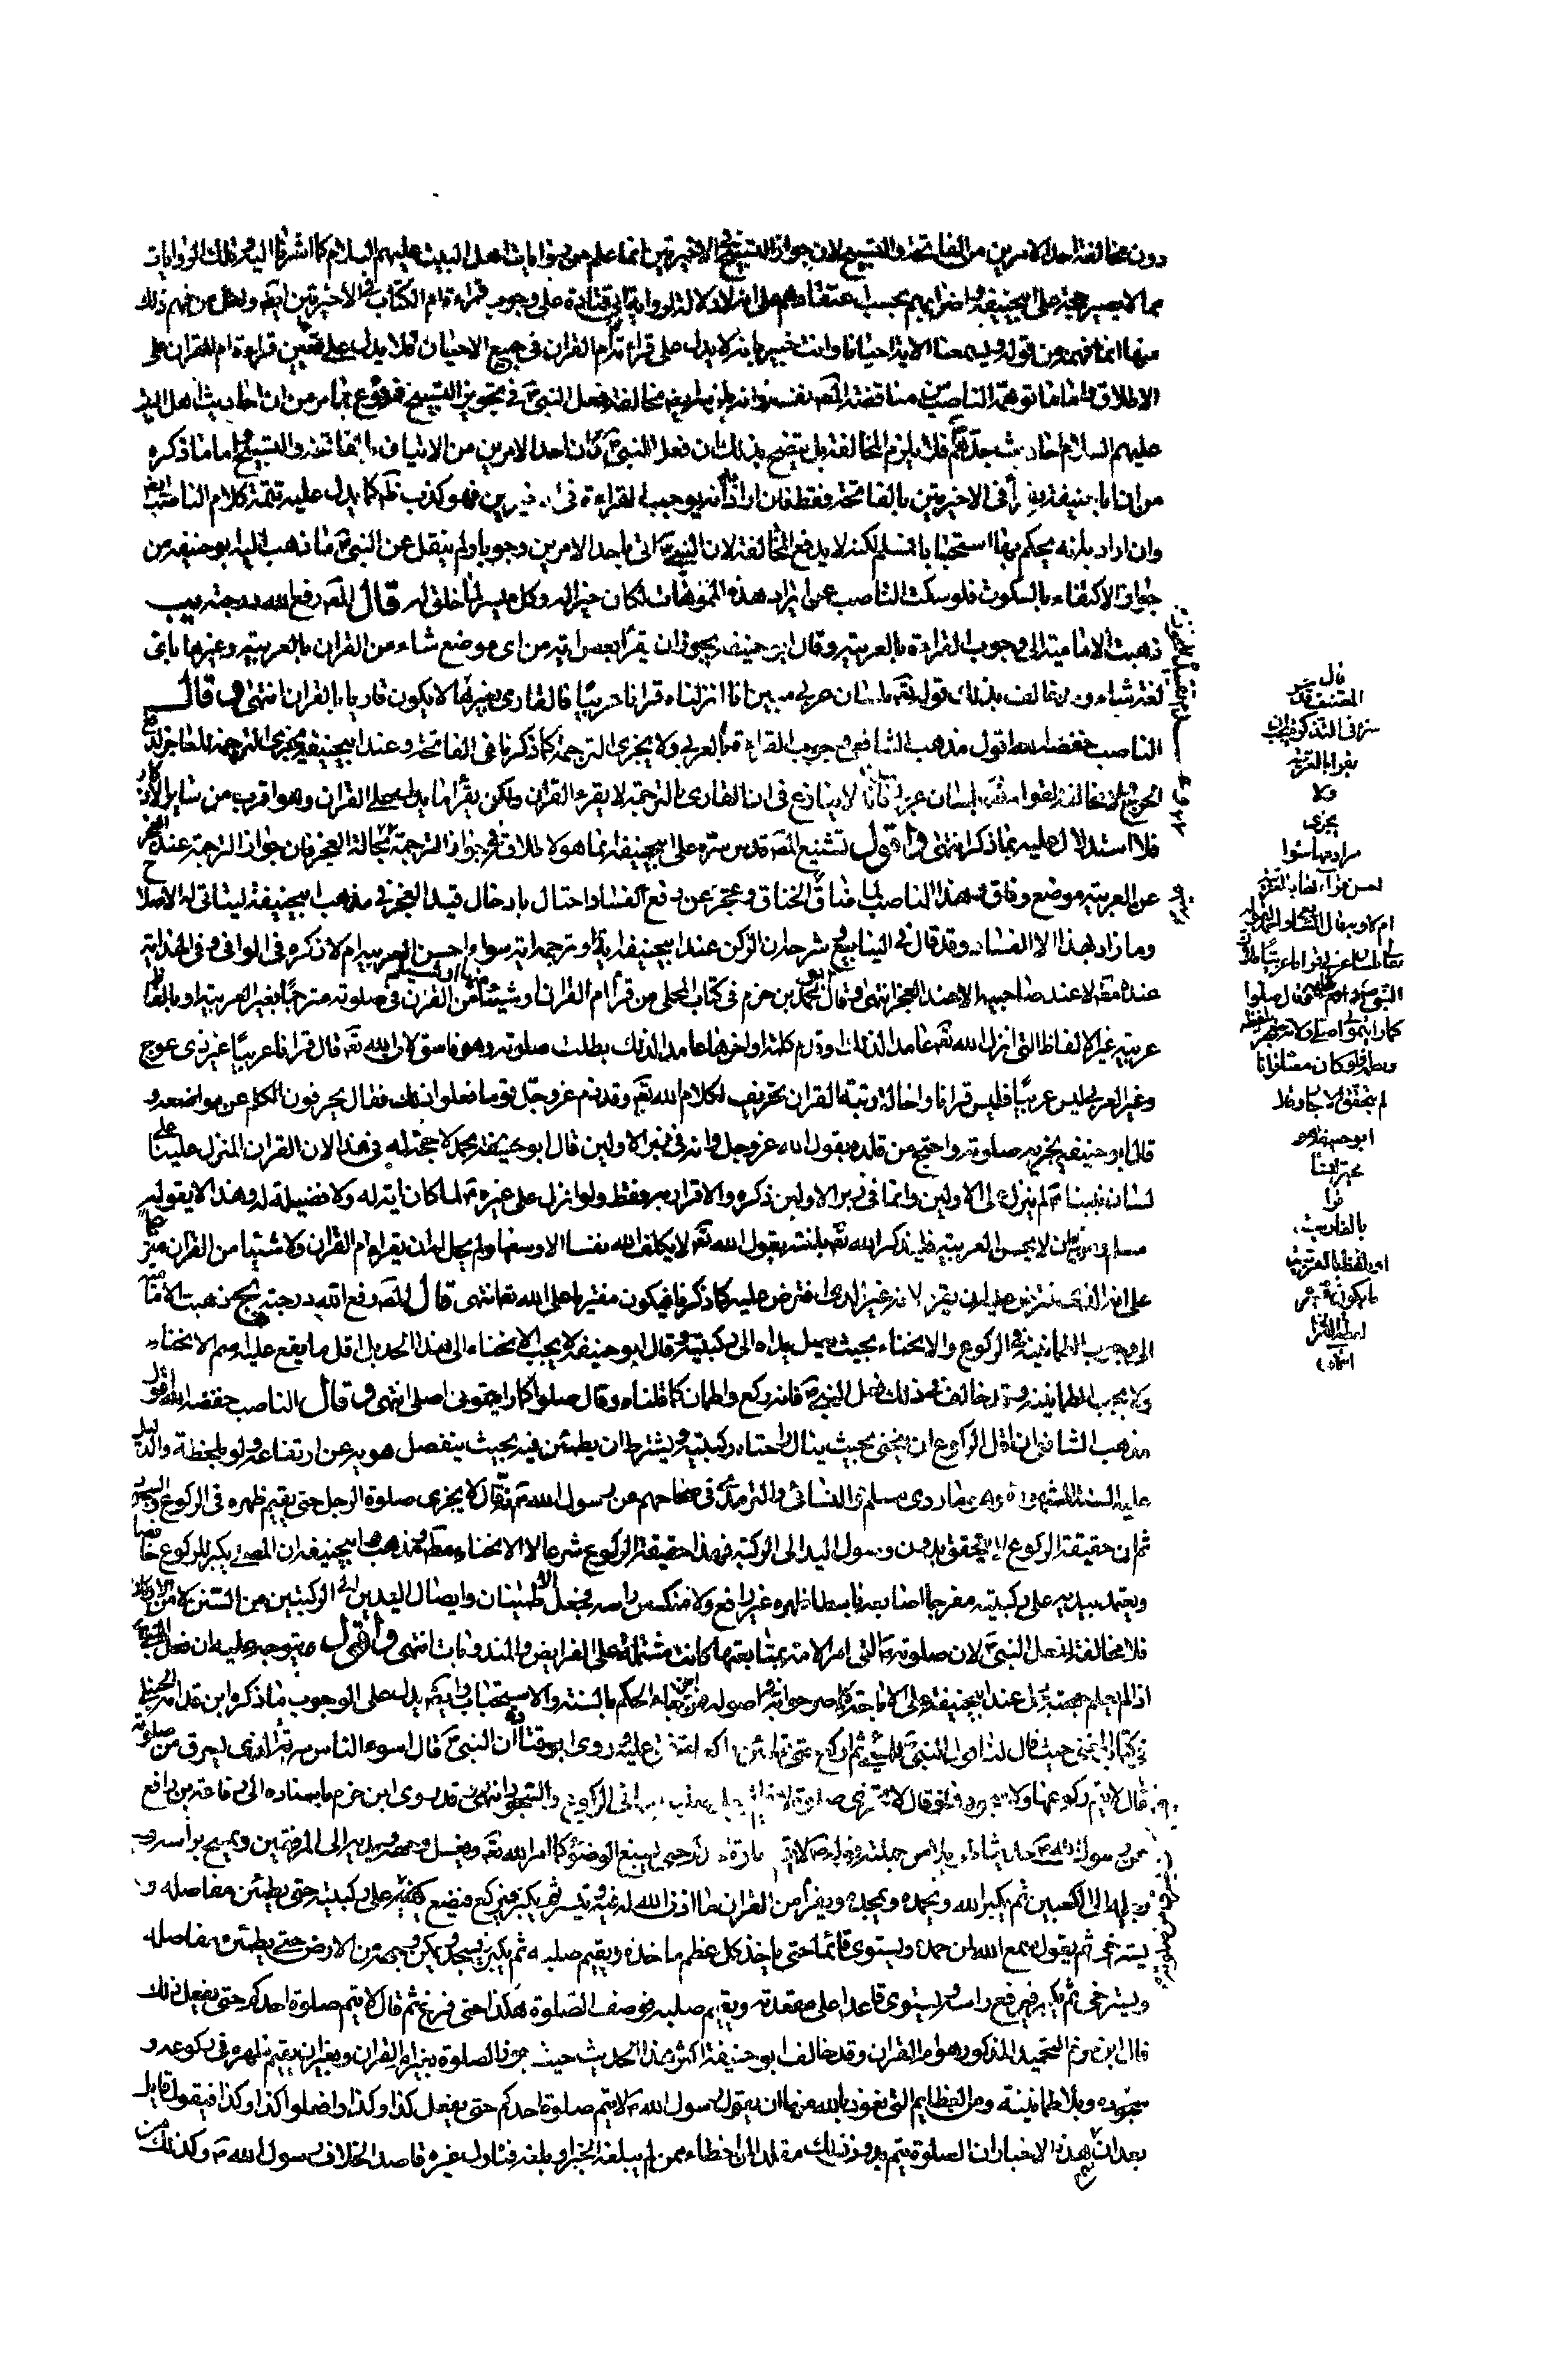 دون مخالفة احد الامرين من الفاتحة والتسبيح لان جواز التسبيح في الاخيرتين انما علم من روايات اهل البيت عليهم السلام كما اشرنا اليه وتلك الروايات
مما لا يصير حجة على ابيحنيفة واضرابهم بحسب اعتقادهم على انه لا دلالة لرواية ابي قتادة على وجوب قراءة ام الكتاب في الاخيرتين ايضا ولعل من فهم ذلك
منها انما فهم من قوله ويسمعنا الاية احيانا وانت خبير بانه لا يدل على قراءة ام القران في جميع الاحيان فلا يدل على تعيين قراءة ام القران على
الاطلاق واما ما توهمه الناصب من مناقضة المص نفسه وانه يلزمه مخالفة فعل النبي ص في تجويز التسبيح فمدفوع بما مر من ان احاديث اهل البيت
عليهم السلام احاديث جدهم فلا يلزم المخالفة بل يتضح بذلك ان فعل النبي ص كان احد الامرين من الاتيان بالفاتحة والتسبيح واما ما ذكره
من ان ابا حنيفة يقرأ في الاخيرتين بالفاتحة فقط فان اراد به انه يوجب القراءة في الاخيرين فهو كذب ظ كما يدل عليه تتمة كلام الناصب ايضا
وان اراد به انه يحكم بها استحبابا فنسلم لكنه لا يدفع المخالفة لان النبي ص اتى باحد الامرين وجوبا ولم ينقل عن النبي ص ما ذهب اليه ابو حنيفة من
جواز الاكتفاء بالسكوت فلو سكت الناصب عن ايراد هذه التموهات لكان خيرا له وكل ميسر لما خلق له قال المص رفع الله درجته يب
ذهبت الامامية الى وجوب القراءة بالعربية وقال ابو حنيفة يجوز ان يقرأ بعض اية من اى موضع شاء من القران بالعربية وغيرها باى
لغة شاء وقد خالف بذلك قوله تعه بلسان عربي مبين انا انزلناه قرانا عربيا فالقارى بغيرها لا يكون قاريا بالقران انتهى وقال
الناصب خفضه الله اقول مذهب الشافعي وجوب القراءة بالعربي ولا يجزى الترجمة كما ذكرنا في الفاتحة وعند ابيحنيفة يجزى الترجمة للعاجز
لا مخالفة لقوله تعه بلسان عربي فانا لا ننازع في ان القارى بالترجمة لا يقرء القران ولكن يقرأ ما يدل على القران وهو اقرب من ساير الاذكار
فلا استدلال عليه بما ذكر انتهى واقول تشنيع المص قدس سره على ابيحنيفة انما هو لاطلاقه جواز الترجمة بحالة العجز فان جواز الترجمة عند العجز
عن العربية موضع وفاق وهذا الناصب لما ضاق الخناق وعجز عن دفع الفساد احتال بادخال قيد العجز في مذهب ابيحنيفة ليتاتى له الاصلاح
وما زاد بهذا الا الفساد وقد قال في الينابيع شرح ان الركن عند ابيحنيفة اية او ترجمة اية سواء احسن العربية ام لا ذكره في الوافي وفي الهداية
عنده مط لا عند صاحبيه الا عند العجز انتهى وقال ابو محمد بن حزم في كتاب المحلى من قرأ ام القران او شيئا منها او شيئا من القران في صلوته مترجما بغير العربية او بالفاظ
عربية غير الالفاظ التي انزل الله تعه عامدا لذلك او قدم كلمة او اخرها عامدا لذلك بطلت صلوته وهو فاسق لان الله تعه قال قرانا عربيا غير ذى عوج
وغير العربي ليس عربيا فليس قرانا واحالة رتبة القران تحريف لكلام الله تعه وقد ذم عز وجل قوما فعلوا ذلك فقال يحرفون الكلم عن مواضعه و
قال ابو حنيفة يجزيه صلوته واحتج من قلده بقول الله عز وجل وانه في زبر الاولين قال ابو محمد لا حجة له في هذا لان القران المنزل علينا على
لسان نبينا ص لم ينزل على الاولين وانما في زبر الاولين ذكره والاقرار به فقط ولو انزل على غيره ص لما كان اية له ولا فضيلة له وهذا لا يقوله
مسلم ومن كان لا يحسن العربية فليذكر الله تعه بلغته لقول الله تعه لا يكلف الله نفسا الا وسعها ولم يحل له ان يقرأ ام القران ولا شيئا من القران مترجما
على انه الذي افترض عليه ان يقرأ لانه غير الذي افترض عليه كما ذكرنا فيكون مفتريا على الله تعا انتهى قال المص رفع الله درجته يج ذهبت الامامية
الى وجوب الطمانينة في الركوع والانحناء بحيث يصل يداه الى ركبتيه وقال ابو حنيفة لا يجب الانحناء الى هذا الحد بل اقل ما يقع عليه اسم الانحناء
ولا يجب الطمانينة وقد خالف في ذلك فعل النبي ص فانه ركع واطمان كما قلناه وقال صلوا كما رايتموني اصلى انتهى وقال الناصب خفضه الله اقول
مذهب الشافعي ان اقل الركوع ان ينحني بحيث ينال راحتاه ركبتيه ويشترط ان يطمئن فيه بحيث ينفصل هويه عن ارتفاعه ولو بلحظة والدليل
عليه السنة المشهورة وهي ما روى مسلم والنسائي والترمذي في صحاحهم عن رسول الله ص انه قال لا يجزى صلوة الرجل حتى يقيم ظهره في الركوع والسجود
ثم ان حقيقة الركوع لا يتحقق بدون وصول اليد الى الركبة فهذا حقيقة الركوع شرعا لا الانحناء مط ومذهب ابيحنيفة ان المصلى يكبر للركوع خافضا
ويعتمد بيديه على ركبتيه مفرجا اصابعه باسطا ظهره غير رافع ولا منكس راسه فجعل الاطمئنان وايصال اليدين الى الركبتين من السنن لا من الاركان
فلا مخالفة لفعل النبي ص لان صلوته ص التي امر الامة بمتابعتها كانت مشتملة على الفرايض والمندوبات انتهى واقول يتوجه عليه ان فعل النبي ص
اذا لم يعلم جهته يدل عند ابيحنيفة على الاباحة كما صرحوا به في اصوله فمن اين جاء الحكم بالسنة والاستحباب وايضا يدل على الوجوب ما ذكره ابن قدامة الحنبلي
في كتاب المغني حيث قال لنا قول النبي ص للمسيء ثم اركع حتى تطمئن راكعا متفق عليه وروى ابو قتادة ان النبي ص قال اسوء الناس سرقة الذي يسرق من صلوته
قال لا يتم ركوعها ولا سجودها وقال لا تجزى صلوة لا يقيم الرجل صلبه فيها في الركوع والسجود انتهى وقد روى ابن حزم باسناده الى رفاعة بن رافع
وجليه الى الكعبين ثم يكبر الله ويحمده ويمجده ويقرأ من القران ما اذن الله له فيه وتيسر ثم يكبر فيركع فيضع كفيه على ركبتيه حتى يطمئن مفاصله و
يسترخى ثم يقول سمع الله لمن حمده ويستوى قائما حتى ياخذ كل عظم ماخذه ويقيم صلبه ثم يكبر فيسجد ويمكن وجهه من الارض حتى يطمئن مفاصله
ويسترخى ثم يكبر فيرفع راسه ويستوى قاعدا على مقعدته ويقيم صلبه فوصف الصلوة هكذا حتى فرغ ثم قال لا يتم صلوة احدكم حتى يفعل ذلك
قال ابن حزم التحميد المذكور هو ام القران وقد خالف ابو حنيفة اكثر هذا الحديث حيث جوز الصلوة بغير ام القران وبغير ان يقيم ظهره في ركوعه و
سجوده وبلا طمانينة ومن العظايم التي نعوذ بالله منها ان يقول رسول الله ص لا يتم صلوة احدكم حتى يفعل كذا وكذا وافعلوا كذا وكذا فيقول قايل
بعد ان سمع هذه الاخبار ان الصلوة يتم بدون ذلك مقلدا لمن اخطاء ممن لم يبلغه الخبر او بلغه فتاول غيره قاصد الخلاف رسول الله ص وكذلك من
قال
المصنف قدس
سره في التذكرة يجب ان
يقرأ بالعربية
ولا
يجزى
مرادفها سواء